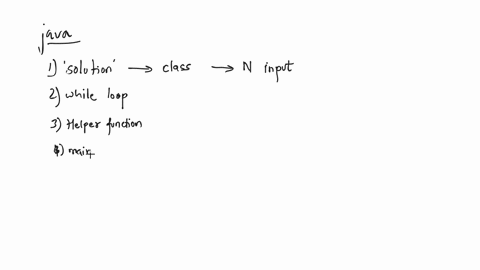 java
1) 'solution' → class → N input
2) while loop
3) Helper function
4) main